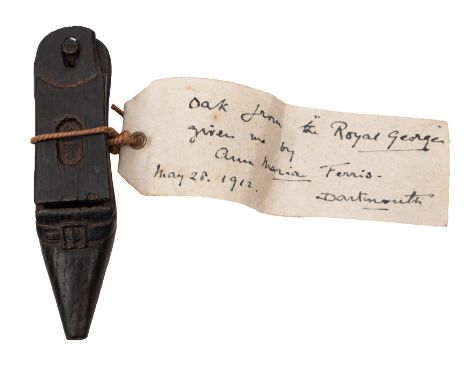 Oak from "the Royal George
given me by
Ann Maria Ferris.
May 28. 1912.
Dartmouth